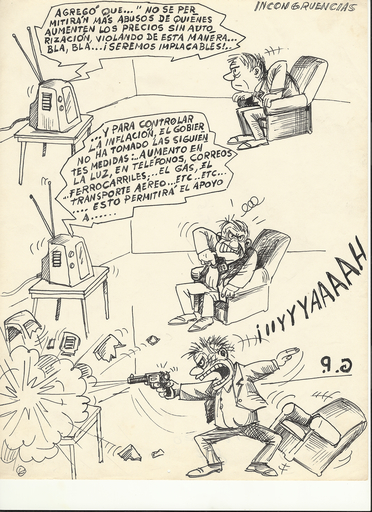 INCONGRUENCIAS
AGREGÓ QUE..." NO SE PER
MITIRÁN MÁS ABUSOS DE QUIENES
AUMENTEN LOS PRECIOS SIN AUTO
RIZACIÓN, VIOLANDO DE ESTA MANERA...
BLA, BLA...¡SEREMOS IMPLACABLES!..
...Y PARA CONTROLAR
LA INFLACIÓN, EL GOBIER
NO HA TOMADO LAS SIGUIEN
TES MEDIDAS:..AUMENTO EN
LA LUZ, EN TELÉFONOS, CORREOS
..FERROCARRILES,...EL GAS, EL
TRANSPORTE AÉREO...ETC...ETC...
...ESTO PERMITIRÁ EL APOYO
A......
¡UUYYYAAAAAH
P.G.